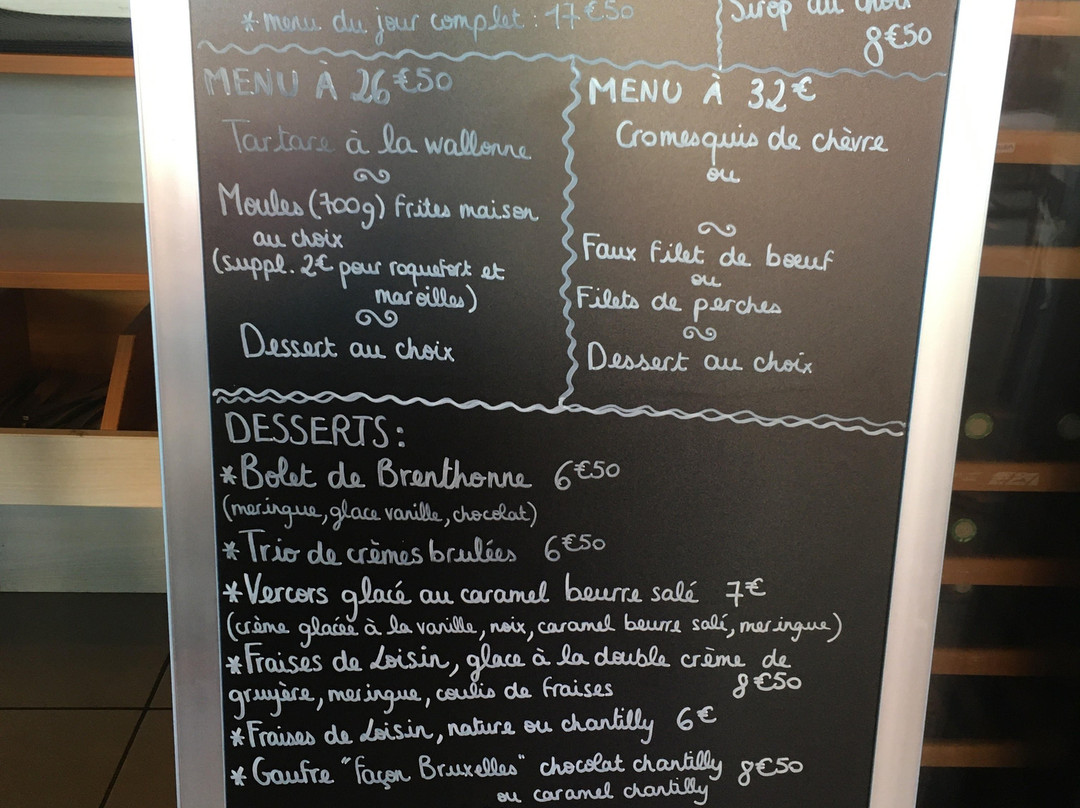 * menu du jour complet : 17€50
Sirop au choix
8€50
MENU À 26€50
Tartare à la wallonne
Moules (700g) frites maison
au choix
(suppl. 2€ pour roquefort et
maroilles)
Dessert au choix
MENU À 32€
Cromesquis de chèvre
ou
Faux filet de boeuf
ou
Filets de perches
Dessert au choix
DESSERTS :
* Bolet de Brenthonne 6€50
(meringue, glace vanille, chocolat)
* Trio de crèmes brulées 6€50
* Vercors glacé au caramel beurre salé 7€
(crème glacée à la vanille, noix, caramel beurre salé, meringue)
* Fraises de Loisin, glace à la double crème de
gruyère, meringue, coulis de fraises 8€50
* Fraises de Loisin, nature ou chantilly 6€
* Gaufre "façon Bruxelles" chocolat chantilly 8€50
ou caramel chantilly